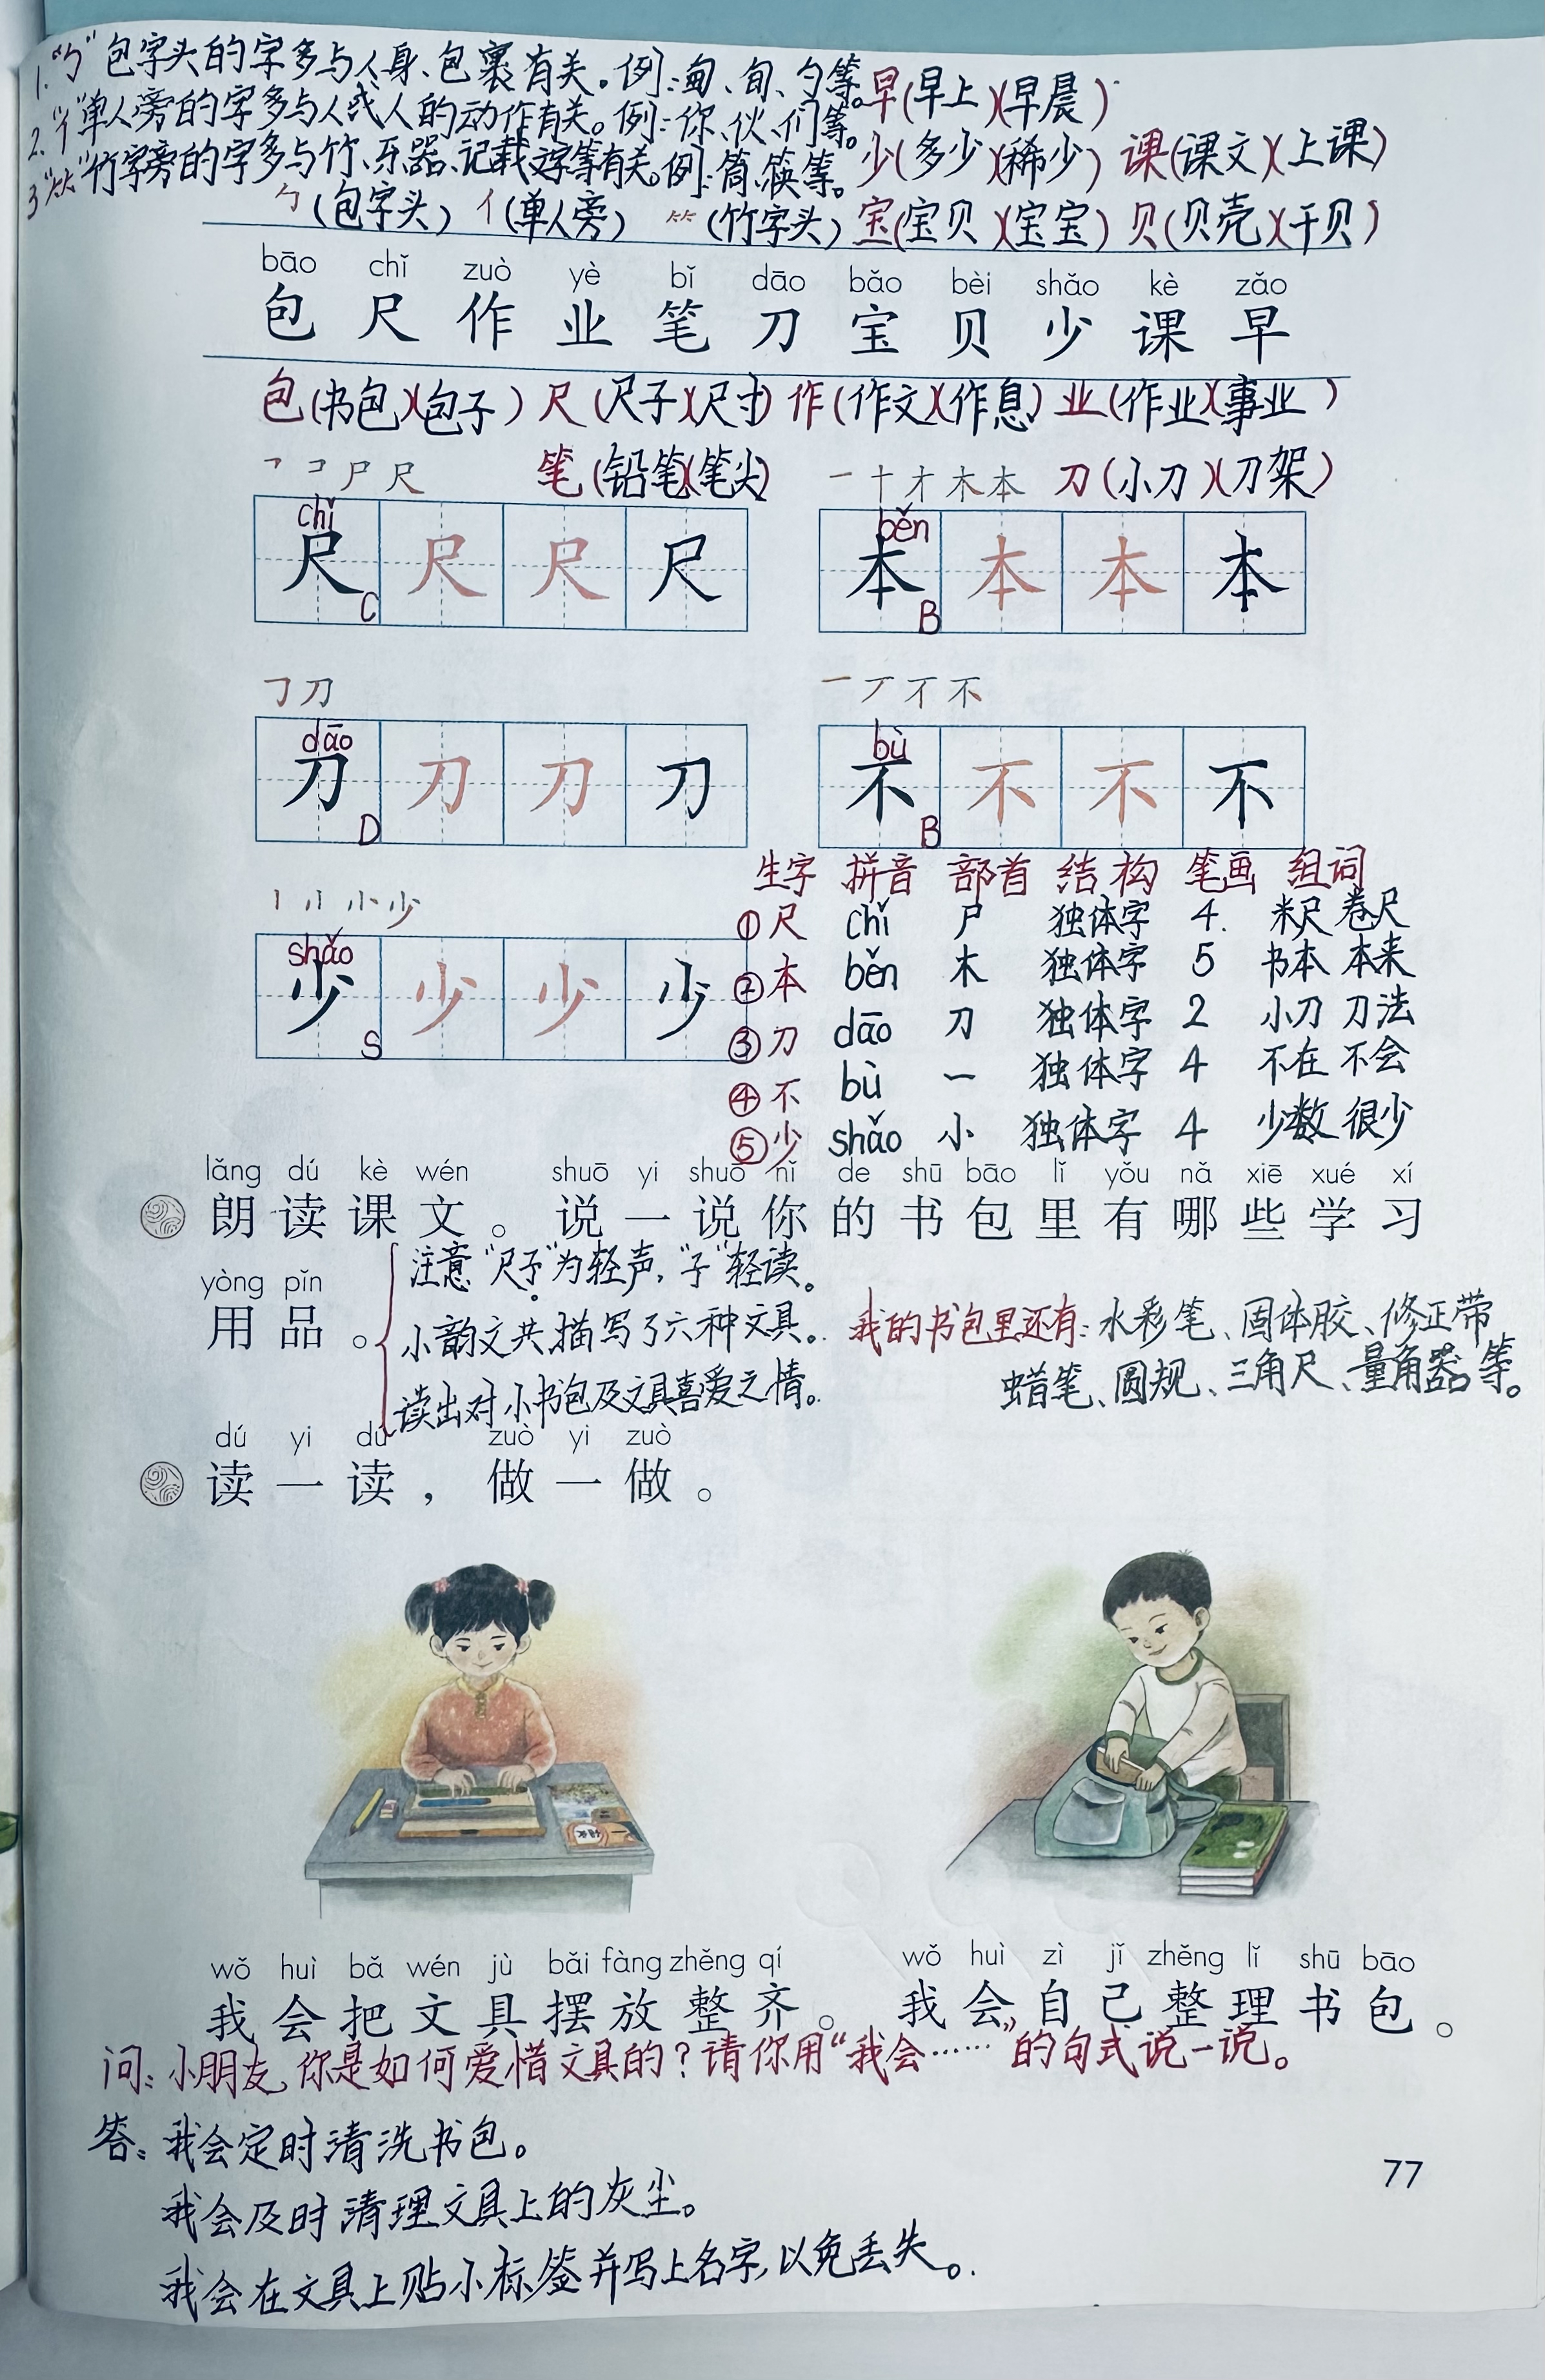 1.“勹”包字头的字多与人身、包裹有关。例:甸、旬、勺等。
2.“亻”单人旁的字多与人或人的动作有关。例:你、伙、们等。
3“⺮”竹字旁的字多与竹、乐器、记载文字等有关。例:筒、筷等。
早(早上)(早晨)
少(多少)(稀少) 课(课文)(上课)
勹(包字头) 亻(单人旁) ⺮(竹字头) 宝(宝贝)(宝宝) 贝(贝壳)(干贝)
bāo chǐ zuò yè bǐ dāo bǎo bèi shǎo kè zǎo
包 尺 作 业 笔 刀 宝 贝 少 课 早
包(书包)(包子) 尺(尺子)(尺寸) 作(作文)(作息) 业(作业)(事业)
笔(铅笔)(笔尖) 刀(小刀)(刀架)
㇕ コ 尸 尺
一 十 才 木 本
chǐ
尺 尺 尺 尺
C
běn
本 本 本 本
B
㇆ 刀
一 丆 不 不
dāo
刀 刀 刀 刀
D
bù
不 不 不 不
B
生字 拼音 部首 结构 笔画 组词
①尺 chǐ 尸 独体字 4. 米尺 卷尺
②本 běn 木 独体字 5 书本 本来
③刀 dāo 刀 独体字 2 小刀 刀法
④不 bù 一 独体字 4 不在 不会
⑤少 shǎo 小 独体字 4 少数 很少
小 少
shǎo
少 少 少 少
S
lǎng dú kè wén shuō yi shuō nǐ de shū bāo lǐ yǒu nǎ xiē xué xí
朗读课文。说一说你的书包里有哪些学习
yòng pǐn
用品。
注意“尺子”为轻声,“子”轻读。
小韵文共描写了六种文具。
读出对小书包及文具喜爱之情。
我的书包里还有:水彩笔、固体胶、修正带
蜡笔、圆规、三角尺、量角器等。
dú yi dú zuò yi zuò
读一读,做一做。
wǒ huì bǎ wén jù bǎi fàng zhěng qí
我会把文具摆放整齐。
wǒ huì zì jǐ zhěng lǐ shū bāo
我会自己整理书包。
问:小朋友,你是如何爱惜文具的?请你用“我会……”的句式说一说。
答:我会定时清洗书包。
我会及时清理文具上的灰尘。
我会在文具上贴小标签并写上名字,以免丢失。
77